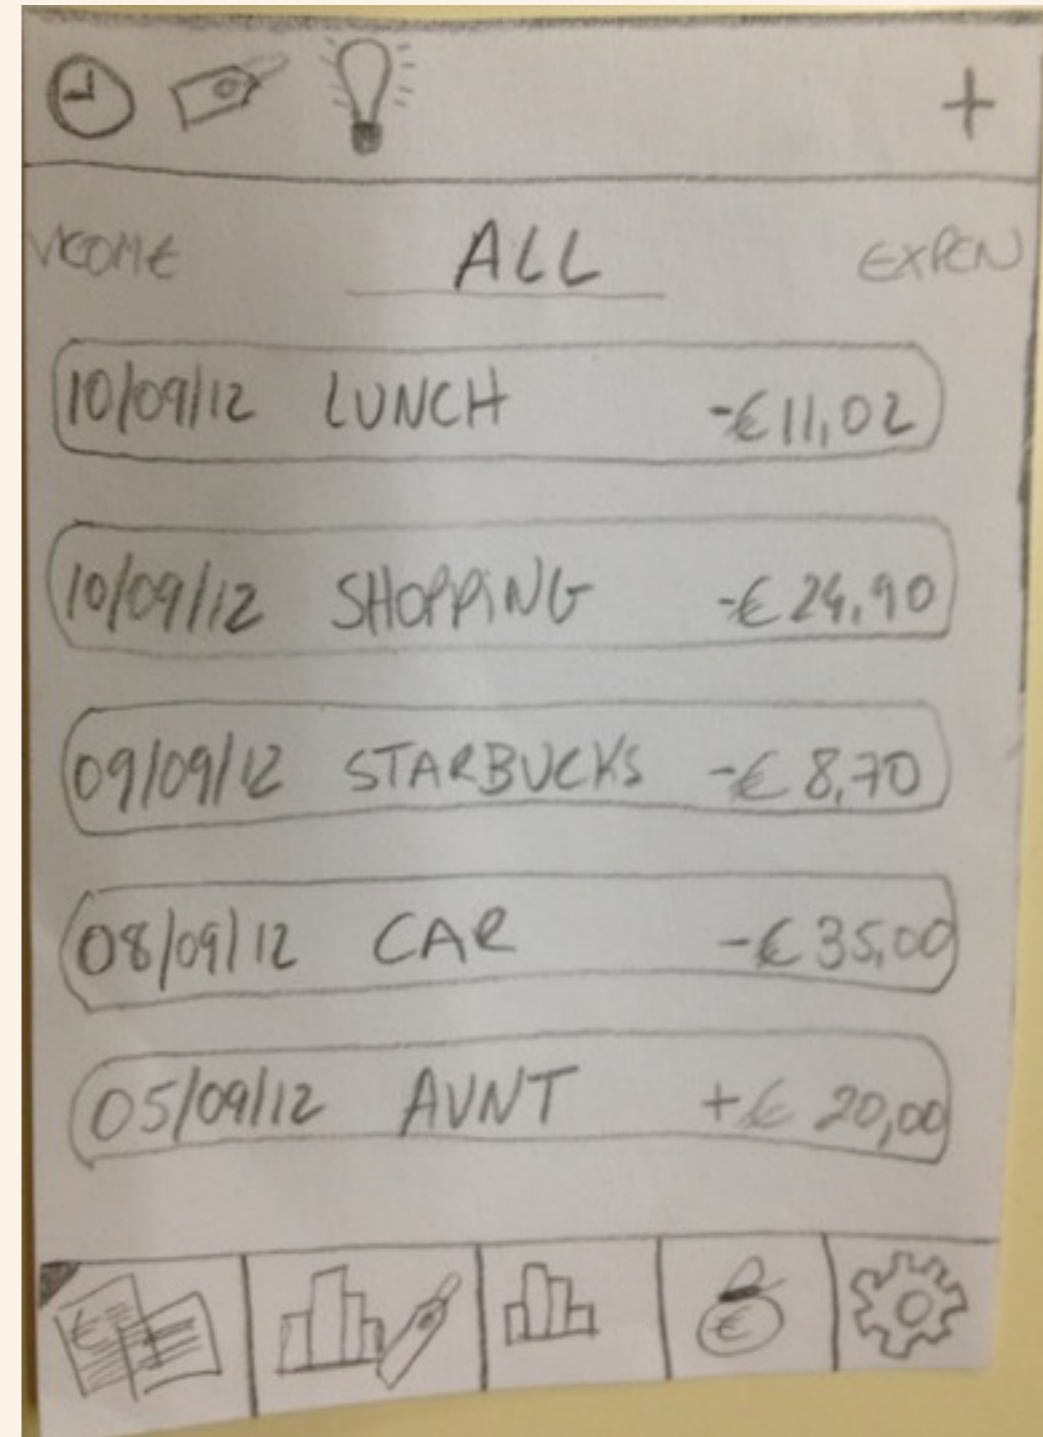 +
INCOME ALL EXPEN
10/09/12 LUNCH -€11,02
10/09/12 SHOPPING -€24,90
09/09/12 STARBUCKS -€8,70
08/09/12 CAR -€35,00
05/09/12 AUNT +€20,00
€
€